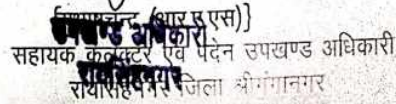 (आर ए एस)}
उपखण्ड अधिकारी
सहायक कलक्टर एवं पदेन उपखण्ड अधिकारी
रायसिंहनगर जिला श्रीगंगानगर